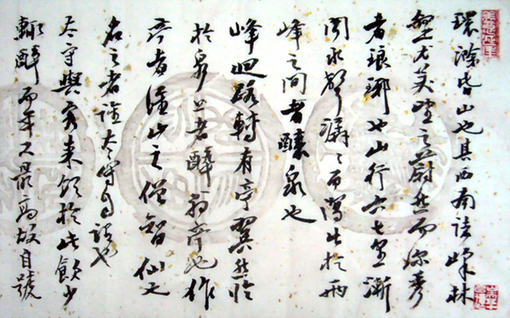 環滁皆山也其西南諸峰林
壑尤美望之蔚然而深秀
者琅琊也山行六七里漸
聞水聲潺々而瀉出於兩
峰之間者釀泉也
峰迴路轉有亭翼然臨
於泉上者醉翁亭也作
亭者誰山之僧智仙也
名之者誰太守自謂也
太守與客來飲於此飲少
輒醉而年又最高故自號